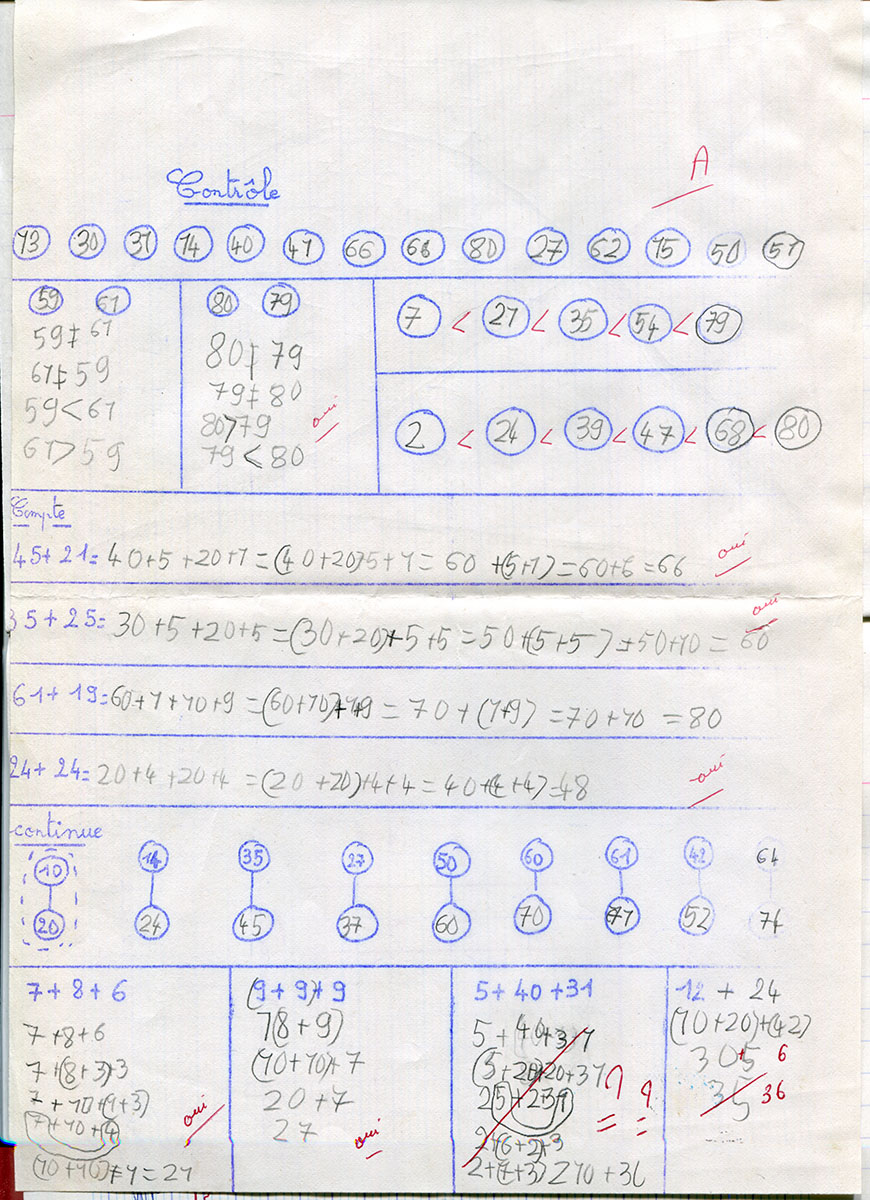 A
Contrôle
73 30 31 74 40 41 66 68 80 27 62 75 50 51
59 61
59 ‡ 61
61 ‡ 59
59 < 61
61 > 59
80 79
80 ‡ 79
79 ‡ 80
80 > 79
79 < 80
oui
7 < 21 < 35 < 54 < 79
2 < 24 < 39 < 47 < 68 < 80
Compte
45+21= 40+5+20+1=(40+20)+5+1= 60 +(5+1)=60+6=66 oui
35+25= 30+5+20+5=(30+20)+5+5=50+(5+5)=50+10=60 oui
61+19= 60+1+10+9=(60+10)+1+9= 70+(1+9)=70+10=80
24+24= 20+4+20+4=(20+20)+4+4=40+(4+4)=48 oui
continue
10 14 35 27 50 60 61 42 64
20 24 45 37 60 70 71 52 74
7+8+6
7+8+6
7+(8+3)+3
7+10+(1+3)
7+10+4
(10+10)+1=21
oui
(9+9)+9
7(8+9)
(10+10)+7
20+7
27
oui
5+40+31
12 + 24
(10+20)+(42)
30+5 6
35 36